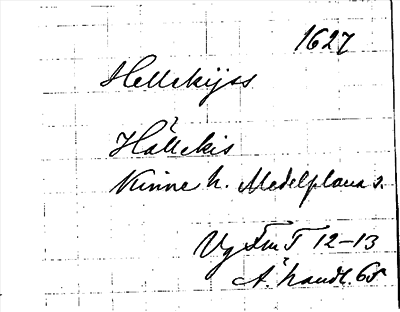 1627
Hellekijss
Hällekis
Kinne h. Medelplana s.
Vg Fm T 12-13
Ä. handl. 65